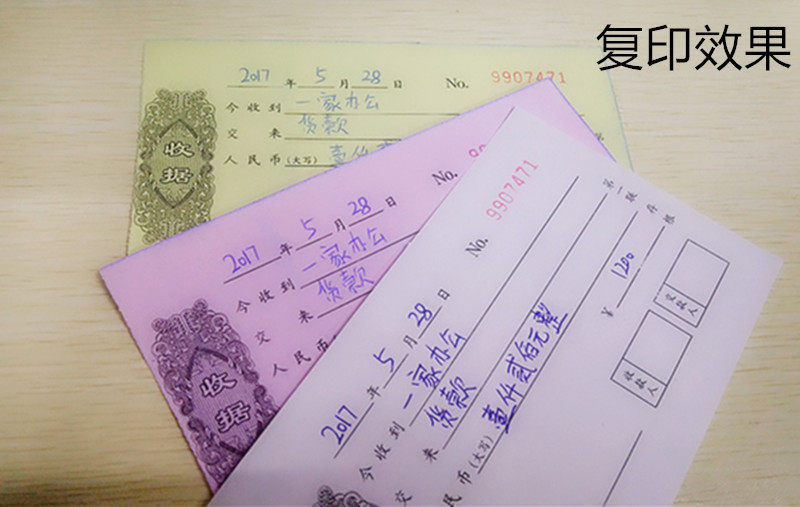 复印效果
2017年5月28日 No. 9907471
今收到 一家办公
交来 货款
人民币(大写) 壹仟
收据
No.
2017年5月28日
今收到 一家办公
交来 货款
人民币
收据
No. 9907471
第一联 存根
2017年5月28日
今收到 一家办公
交来 货款
民币(大写) 壹仟贰佰元整
¥ 1200
收款人
交款人